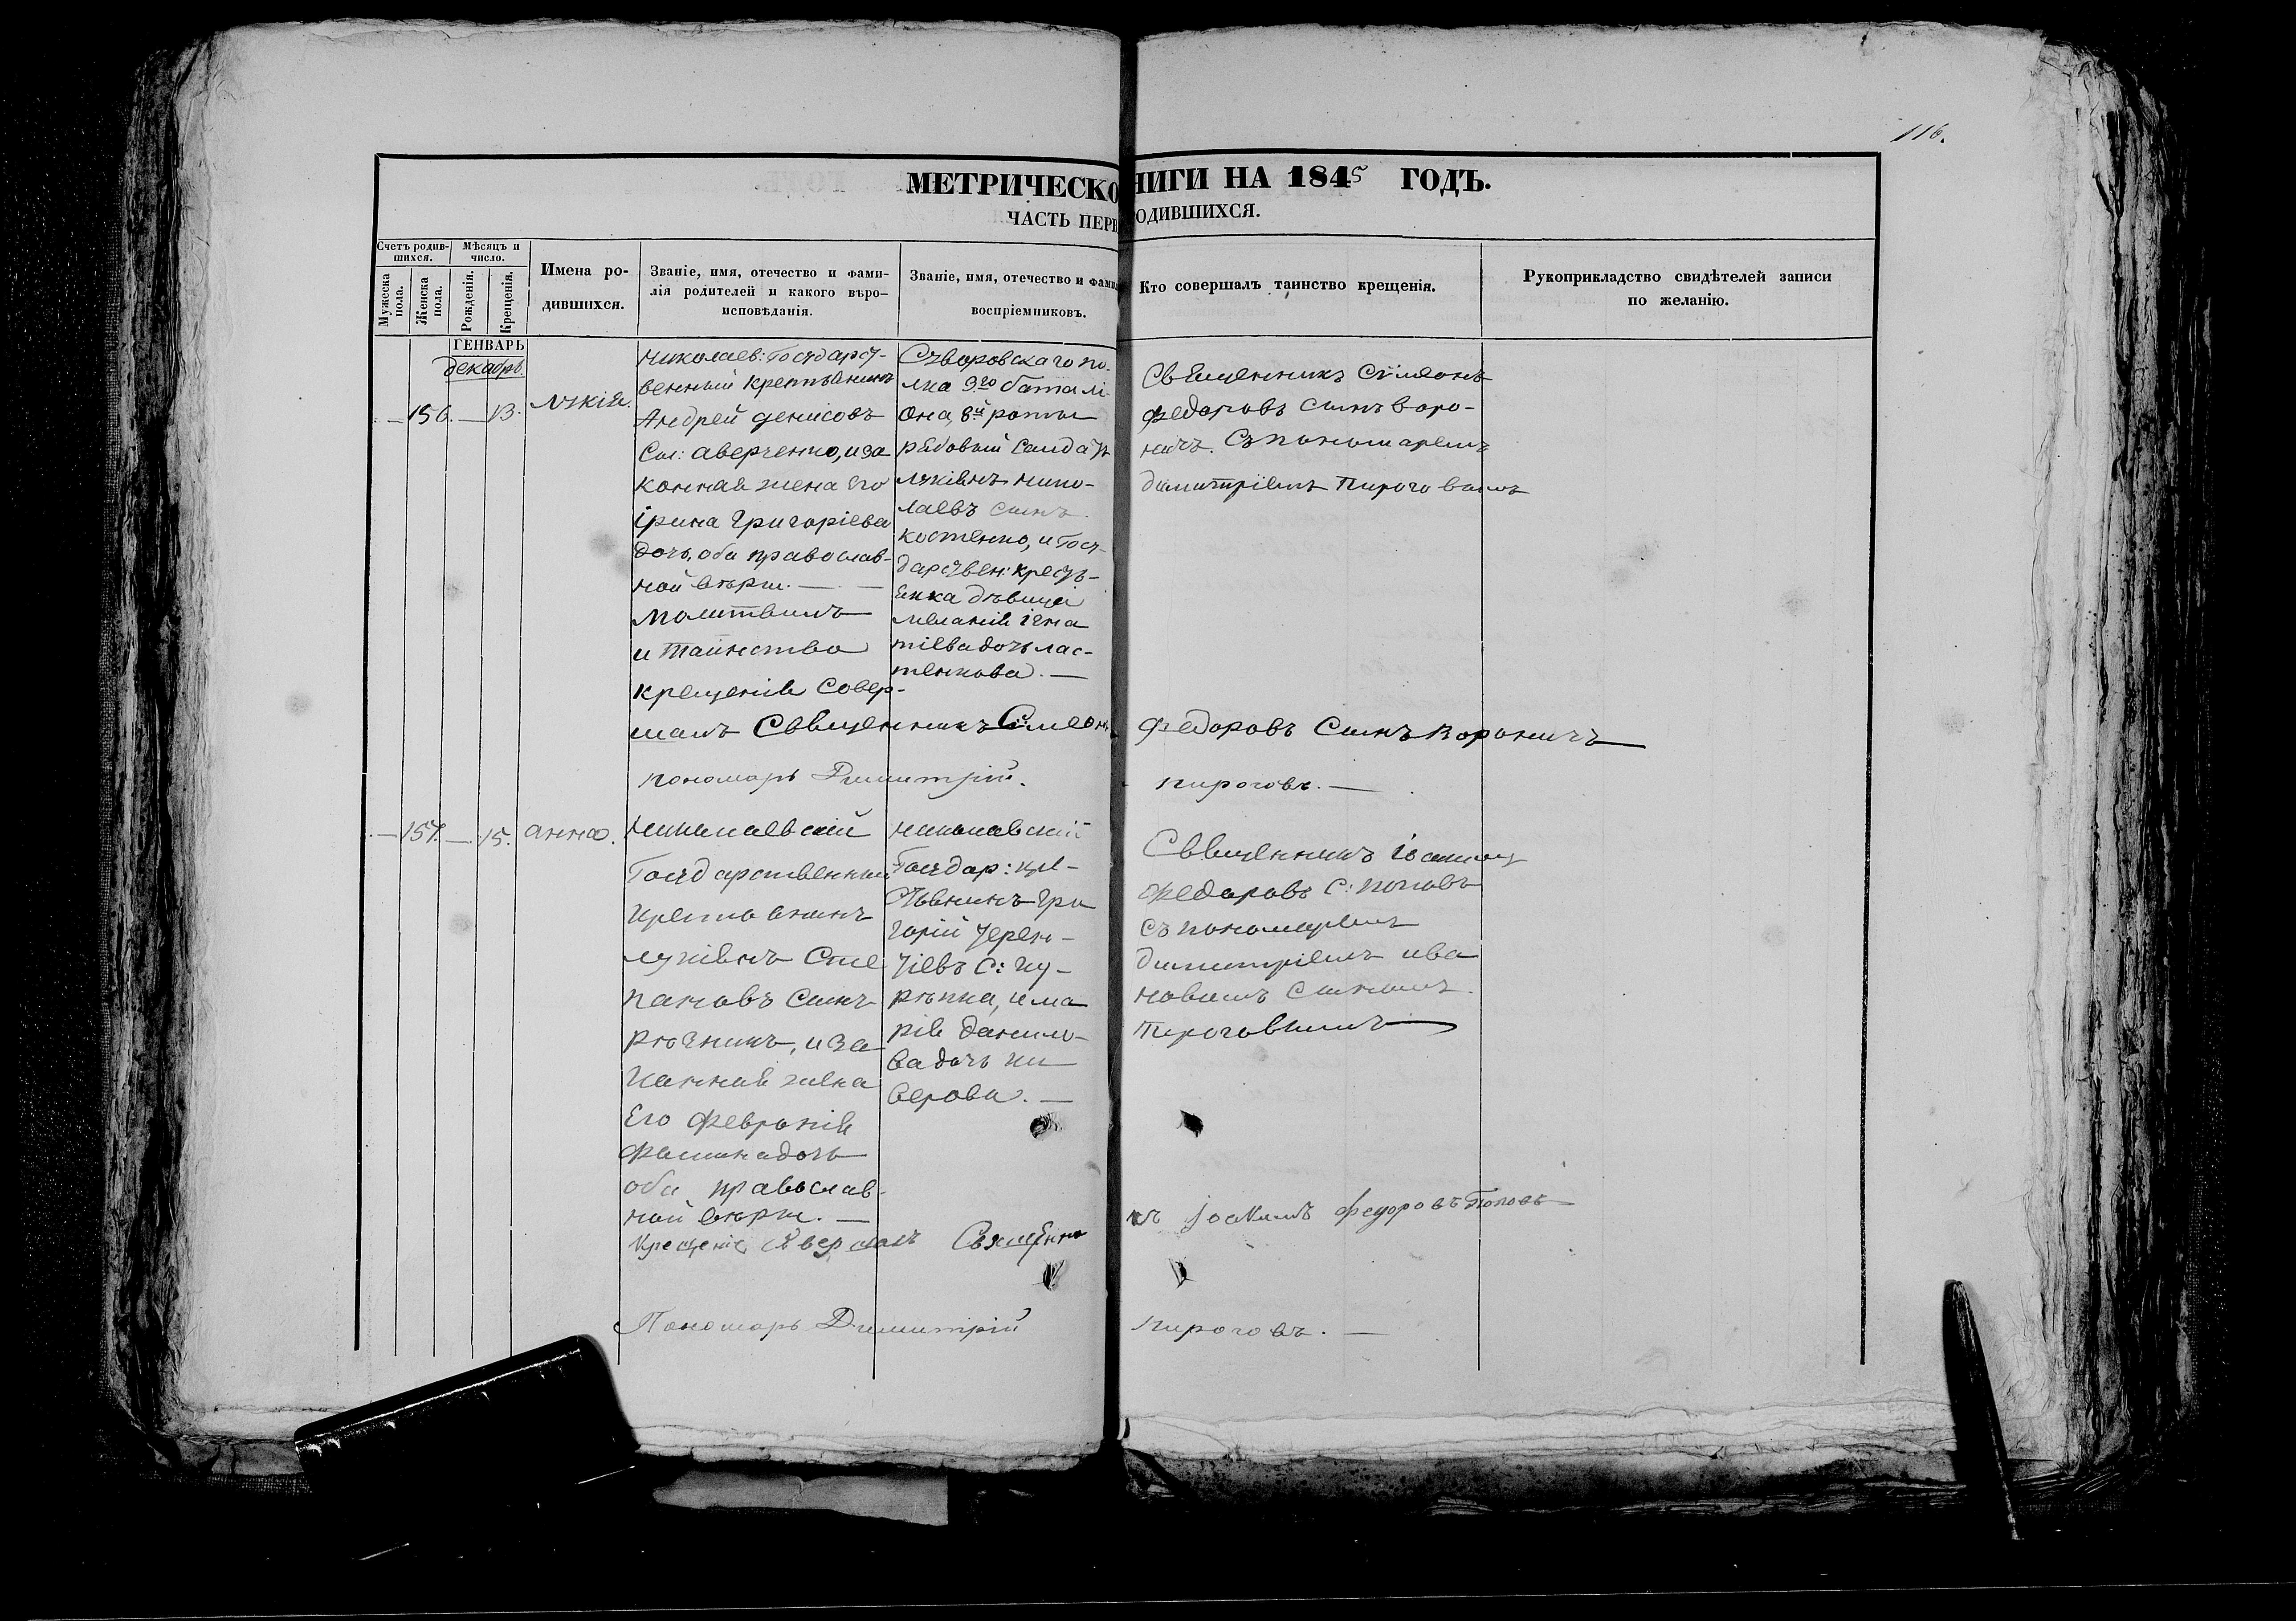 116.
МЕТРИЧЕСКО НИГИ НА 1845 ГОДЪ.
ЧАСТЬ ПЕРВ ОДИВШИХСЯ.
Счетъ родив-
шихся.
Мужеска пола.
Женска пола.
Мѣсяцъ и число.
Рожденія.
Крещенія.
Имена ро-
дившихся.
Званіе, имя, отечество и фами-
лія родителей и какого вѣро-
исповѣданія.
Званіе, имя, отечество и фами
воспріемниковъ.
Кто совершалъ таинство крещенія.
Рукоприкладство свидѣтелей записи
по желанію.
ГЕНВАРЬ
декабрь.
156. 13.
Николаев: Государст-
венный крестьянинъ
Андрей денисовъ
Сын: аверченко, и за
конная жена Его
ірина Григоріева
дочь, оба православ-
ной вѣры.
Молитвилъ
и Таинство
крещенія Совер-
шалъ Священникъ Сѵмеонъ Федоровъ Сынъ Вороничъ
пономарь Димитрій Пироговъ.
Суворовскаго по-
лка 9го баталі-
Она, 8й роты
рядовый Салдатъ
лукіянъ нико-
лаевъ сынъ
костенко, и Госу-
дарствен: кресть-
янка дѣвица
меланія ігна
тіева дочь лас-
тенкова.
Священникъ Сѵмеонъ
Федоровъ Сынъ воро-
ничъ. Съ пономаремъ
димитріемъ Пироговымъ
157. 15. анна.
Николаевскій
Государственный
крестьянинъ
лукіянъ Сте
пановъ Сынъ
и за
конная жена
Его Февронія
Фомина дочь
оба православ-
ной вѣры.
Крещеніе Совершалъ Священникъ Іоакимъ Федоровъ Поповъ
Пономарь Димитрій Пироговъ.
николаевскій
Государ: кре-
стьянинъ Гри
горій Терен-
тіевъ С:
и ма
рія данило-
ва дочь
Священникъ Іоакимъ
Федоровъ С: поповъ
съ пономаремъ
димитріемъ ива
новымъ Сыномъ
Пироговымъ